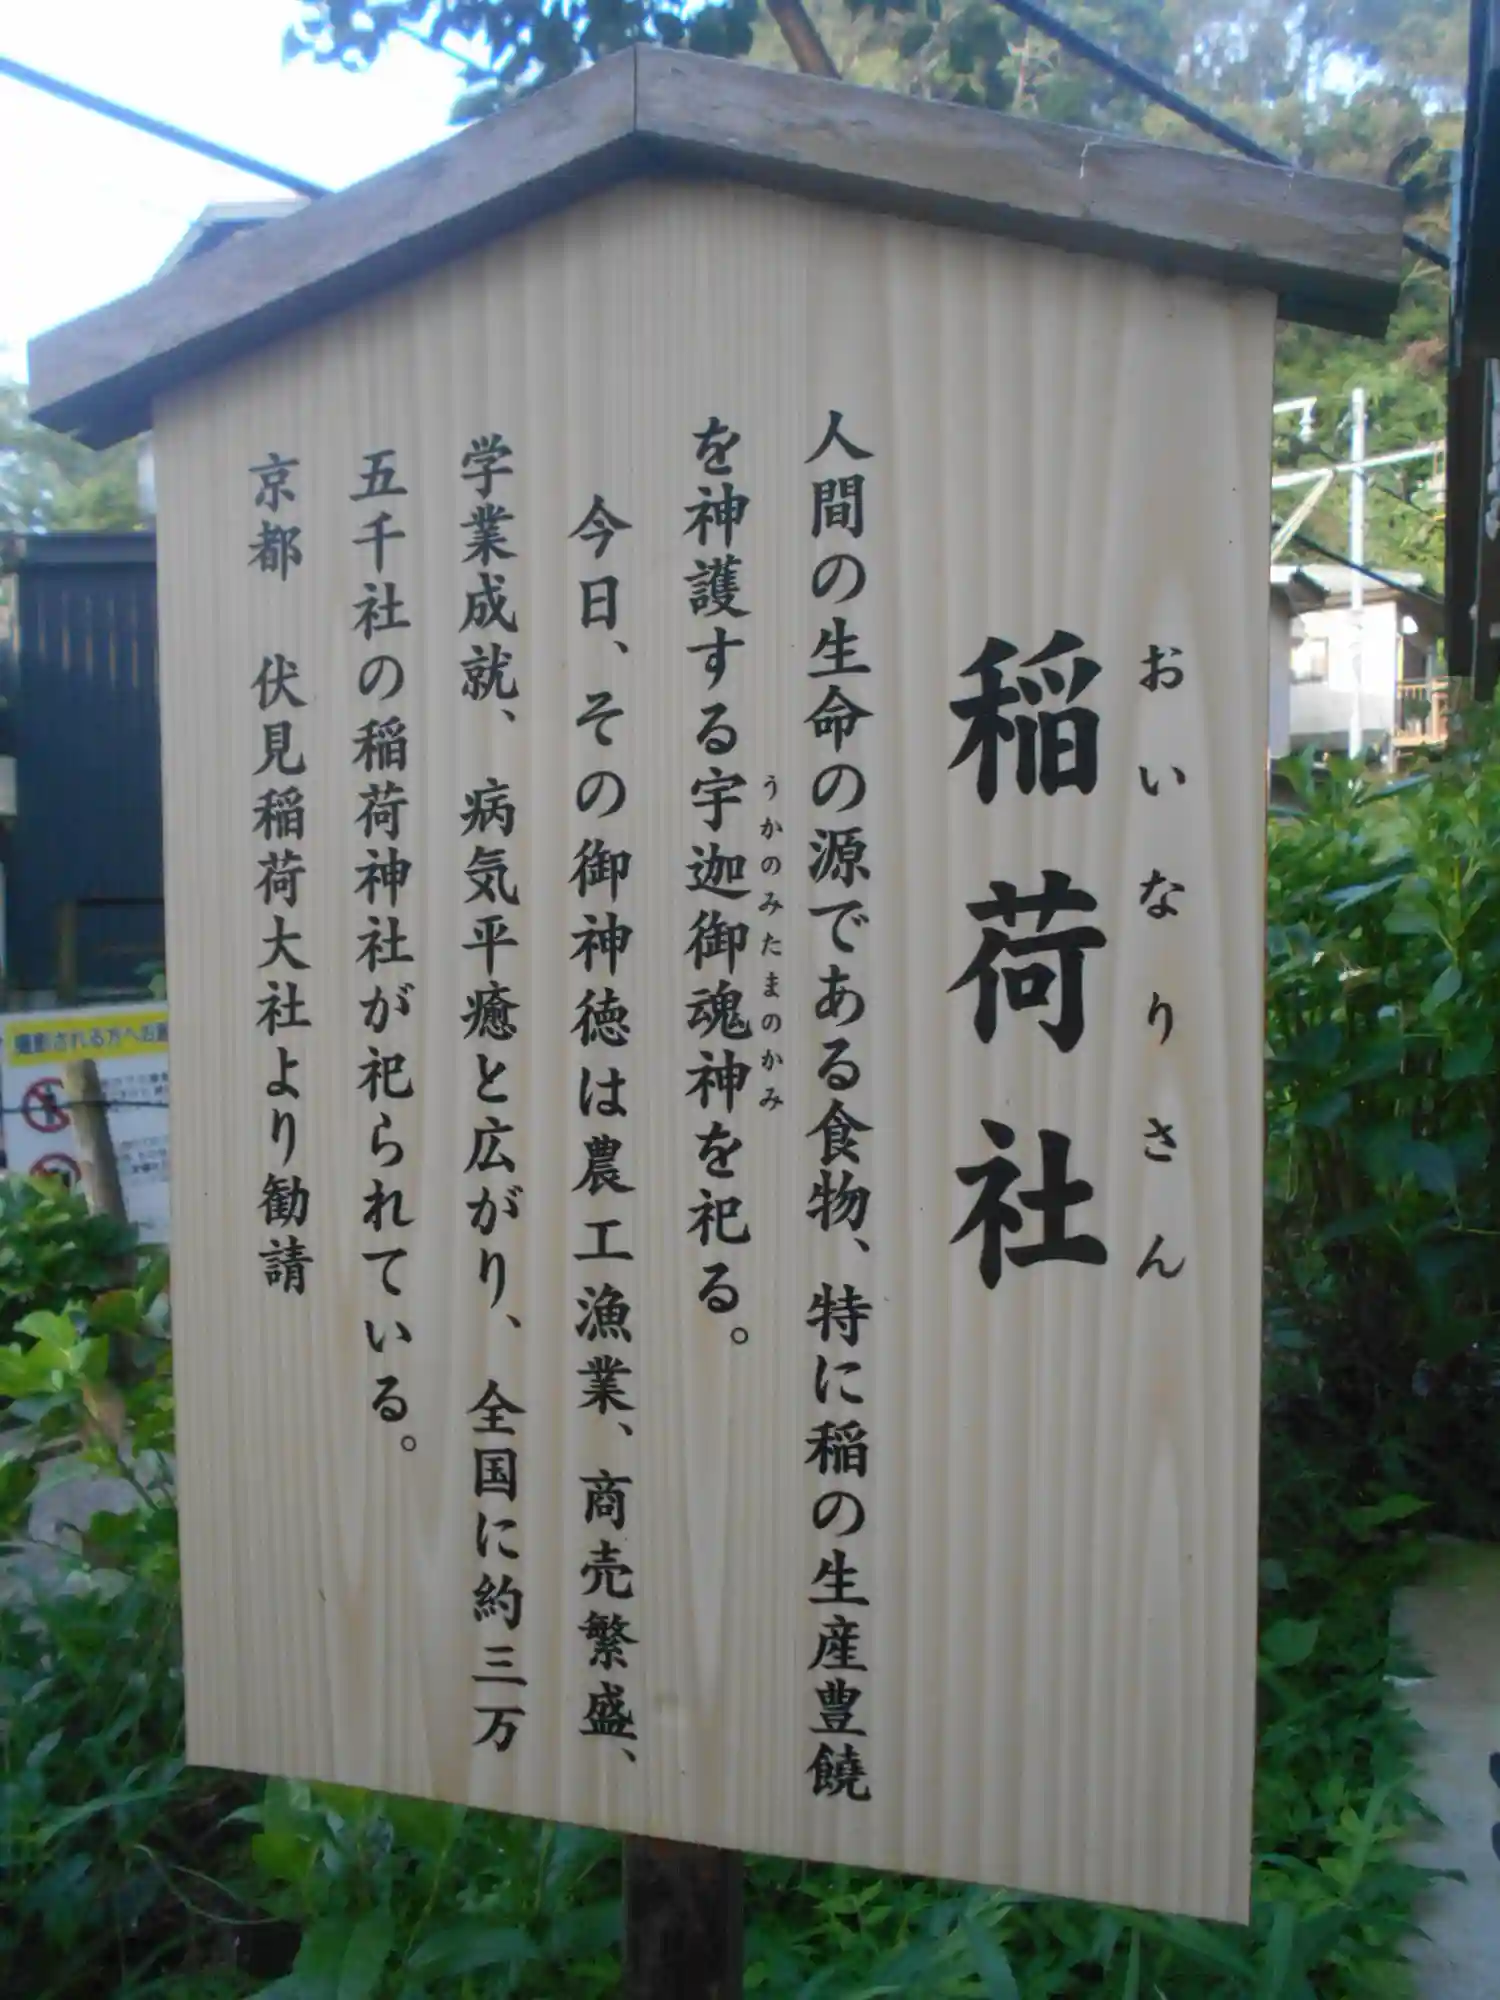 おいなりさん
稲荷社
人間の生命の源である食物、特に稲の生産豊饒
うかのみたまのかみ
を神護する宇迦御魂神を祀る。
今日、その御神徳は農工漁業、商売繁盛、
学業成就、病気平癒と広がり、全国に約三万
五千社の稲荷神社が祀られている。
京都 伏見稲荷大社より勧請
撮影される方へお願